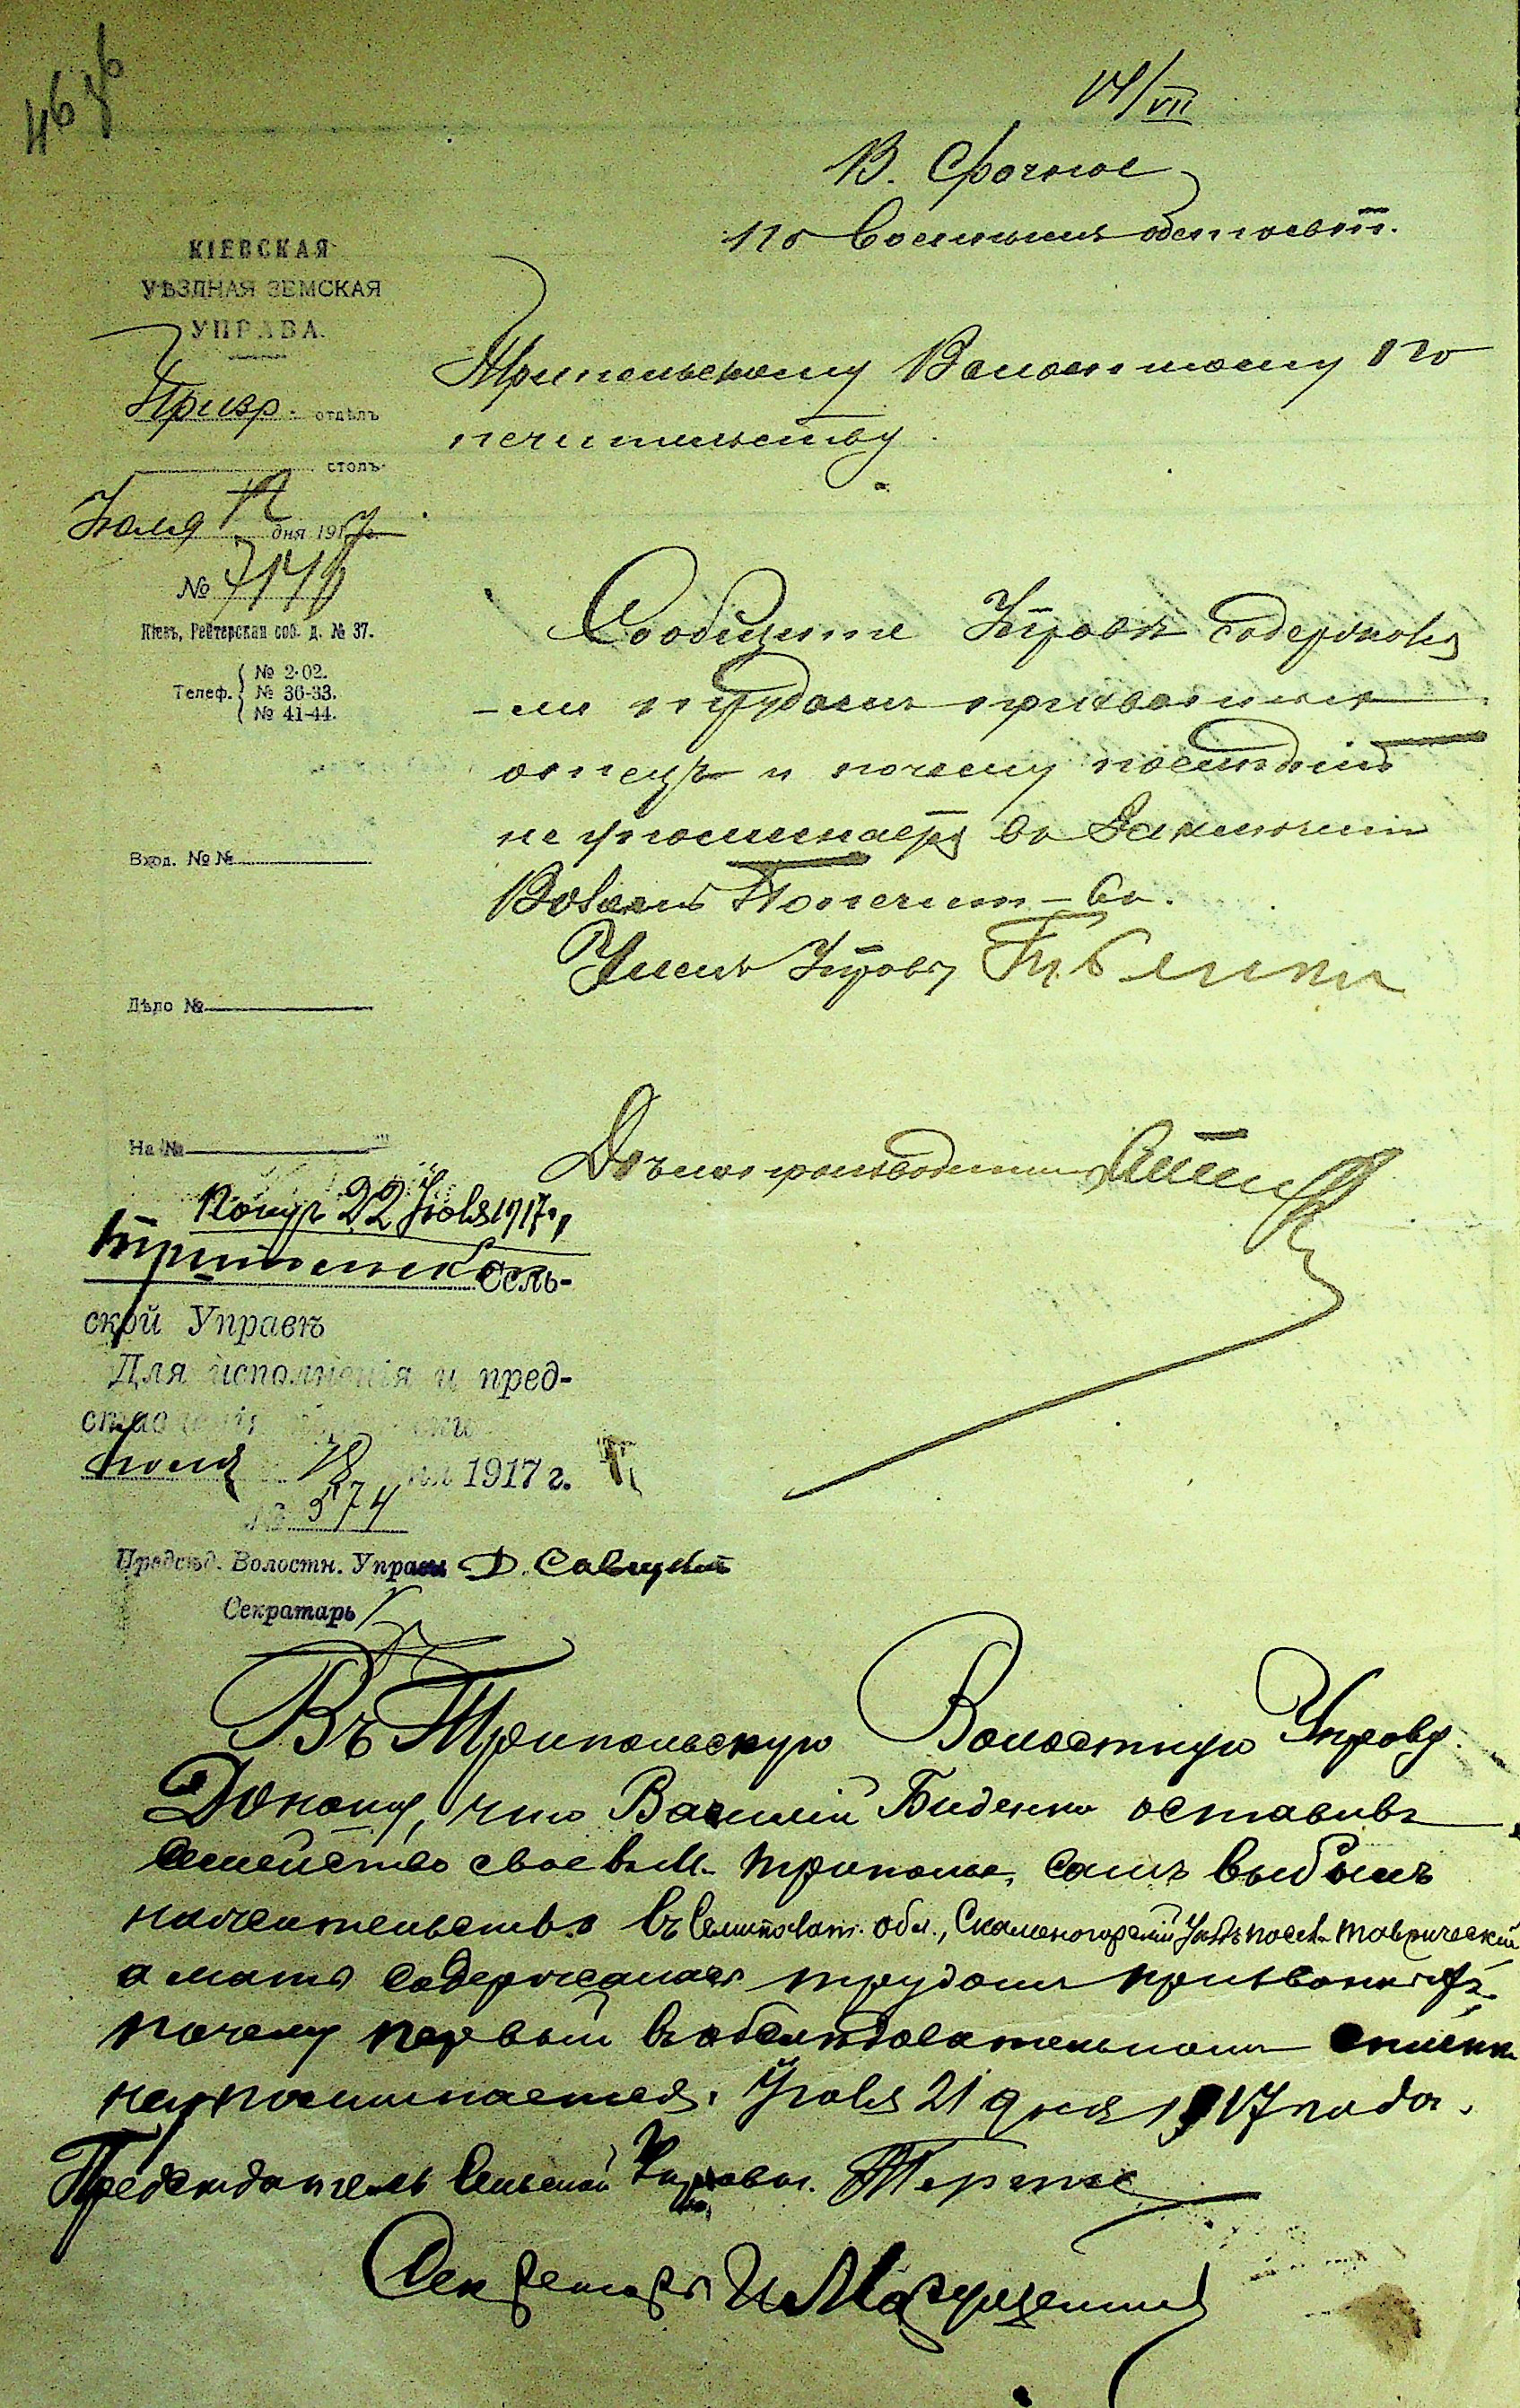 14/VII
В. Срочное
по военнымъ обстоят.
КІЕВСКАЯ
УѢЗДНАЯ ЗЕМСКАЯ
УПРАВА.
Призр. отдѣлъ
столъ
Іюля 12 дня 1917 г.
№ 7146
Кіевъ, Рейтерская соб. д. № 37.
Телеф. № 2-02.
№ 36-33.
№ 41-44.
Вход. №№
Дѣло №
На №
Трипольскому Волостному По
печительству.
Сообщите Управѣ содержался
-ли трудомъ призваннаго
отецъ и почему послѣдній
не упоминается въ Заключеніи
Волостн Попечит-ва.
Членъ Управы
Дѣлопроизводитель
Получ 22 Іюля 1917 г.
Трипольской Сель-
ской Управѣ
Для исполненія и пред-
ставленія
Іюля 18 дня 1917 г.
№ 574
Предсѣд. Волостн. Управы Д. Савицкій
Секратарь
Въ Трипольскую Волостную Управу.
Доношу, что Василій Биденко оставивъ
семейство свое въ м. Триполье, самъ выбылъ
на жительство въ Семипалат. обл., Скаменогорскій Уѣздъ посел. Таврическій
а мать содержалась трудом призваннаго,
почему первый въ обслѣдовательном спискѣ
не упоминается. Іюля 21 дня 1917 года.
Предсѣдатель Сельской Управы.
Секретарь